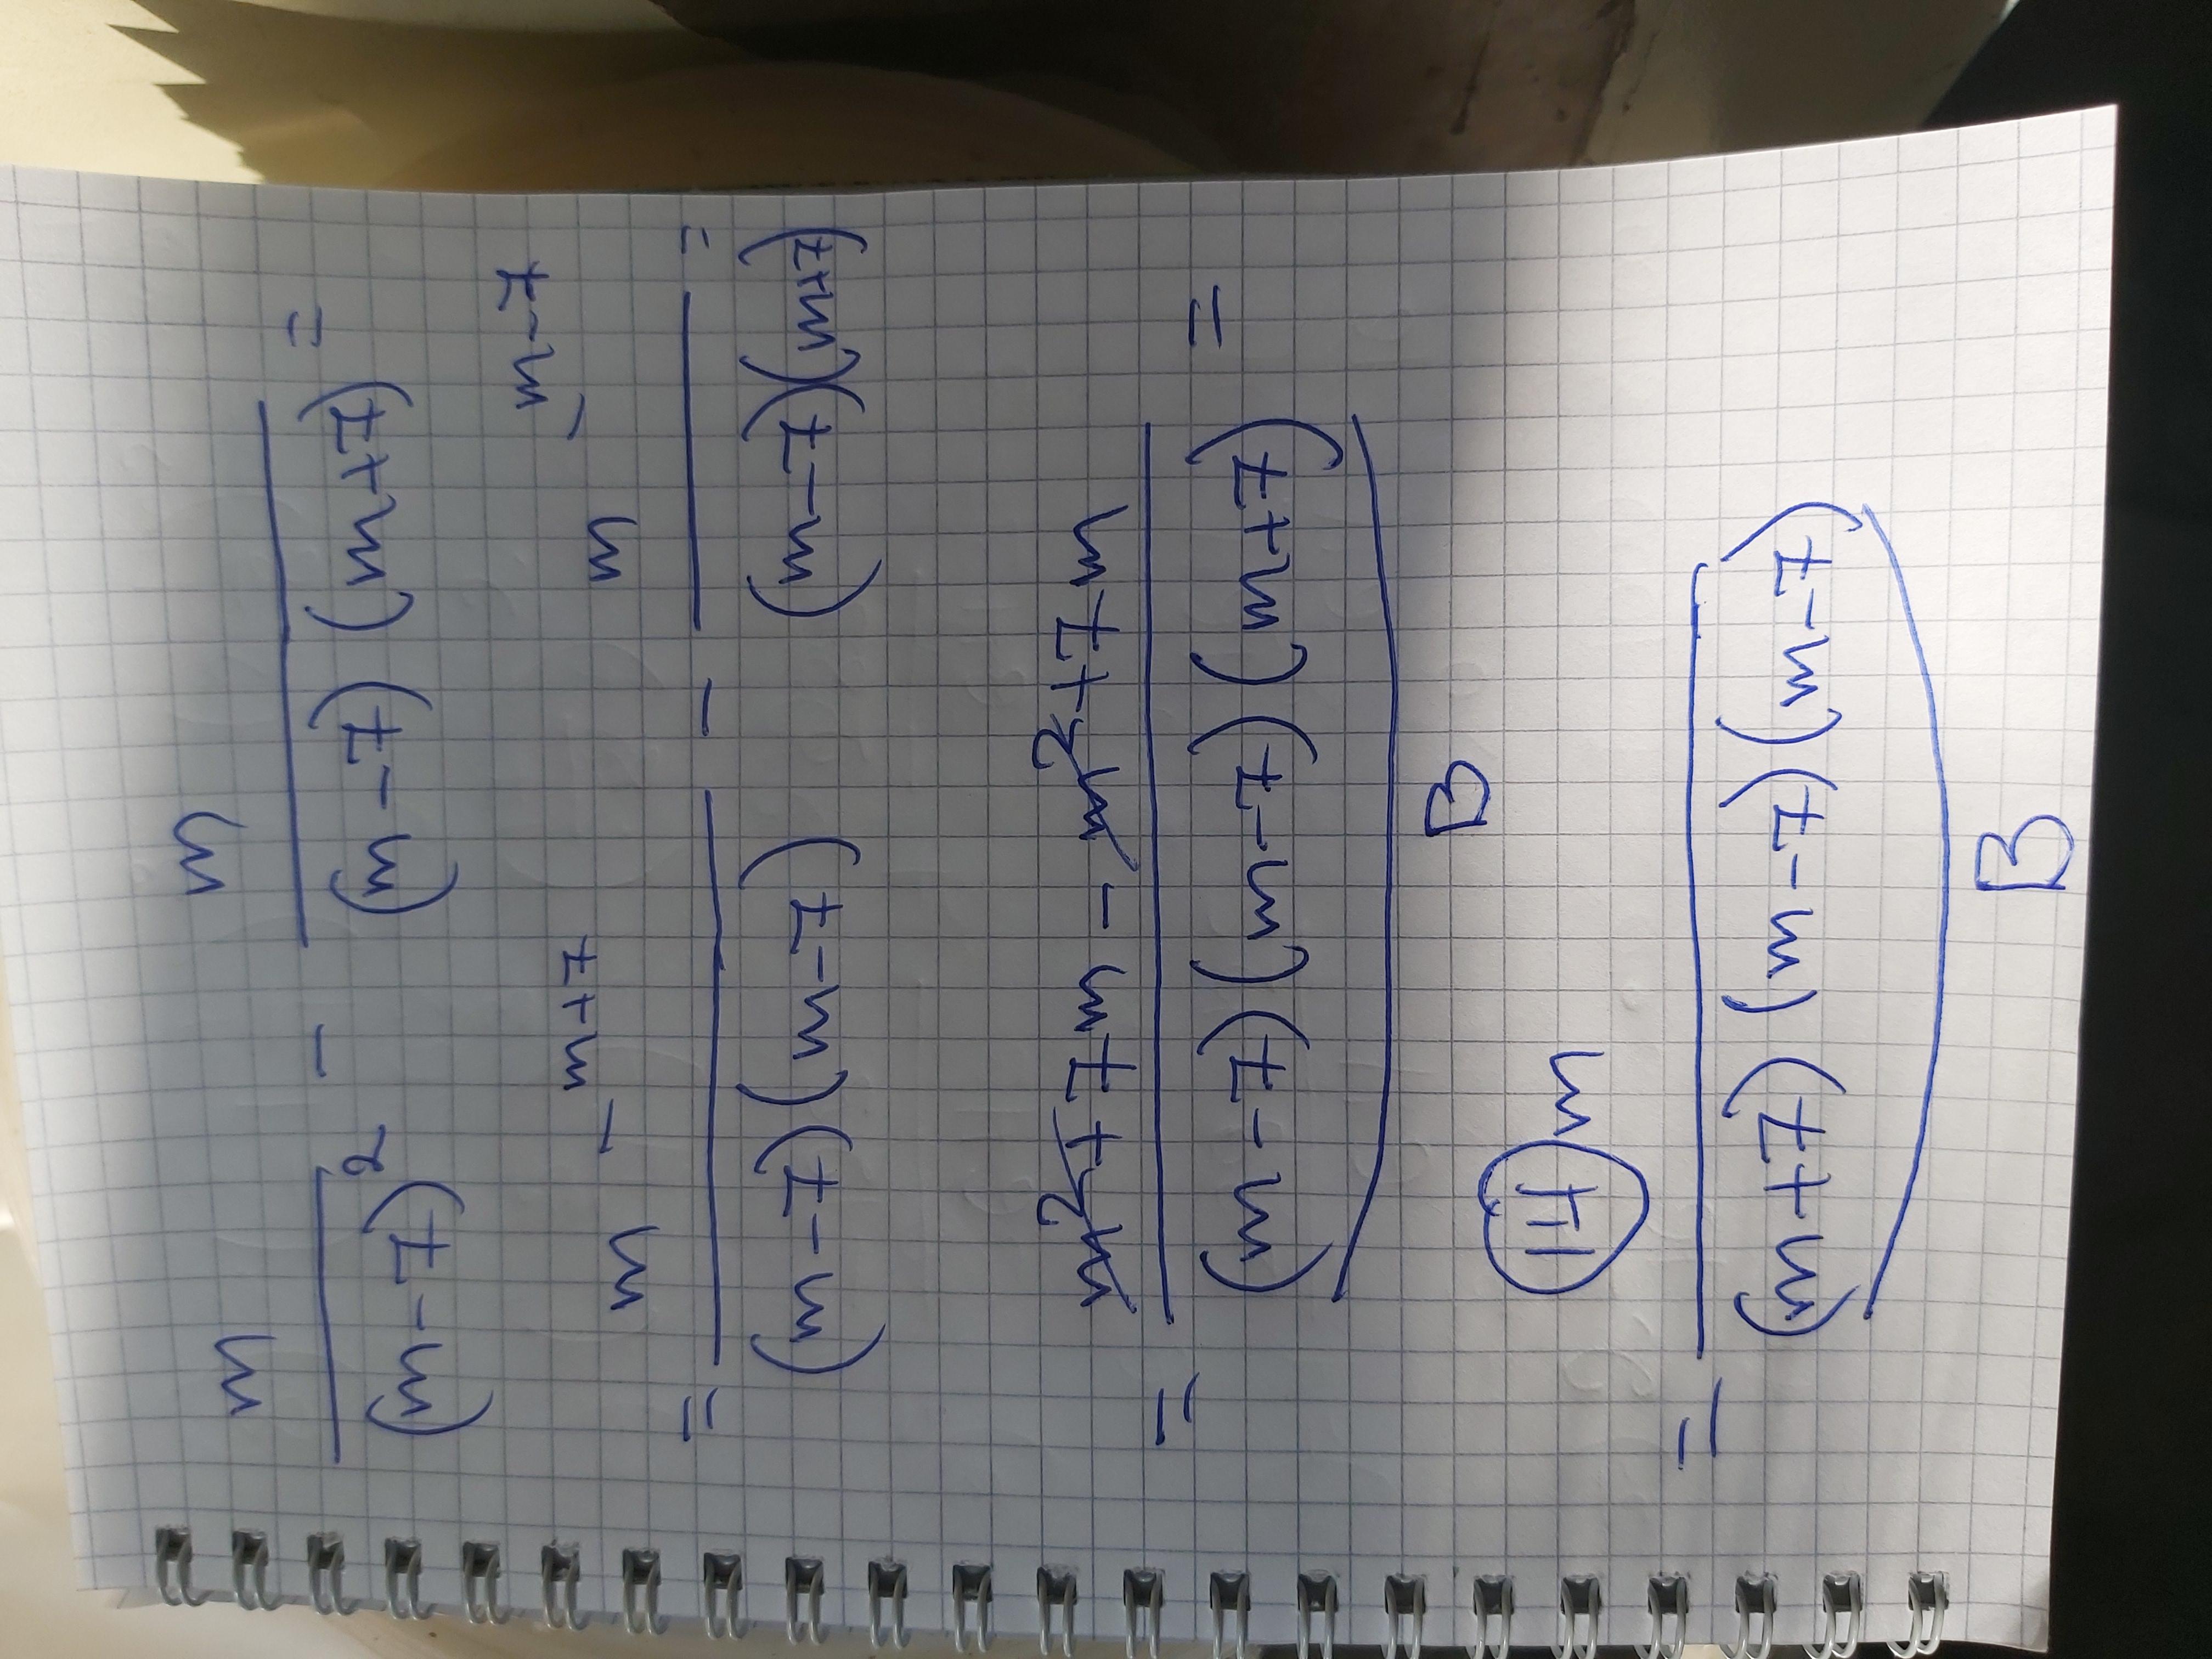 m/(m-7)² - m/(m-7)(m+7) =
= m \ m+7/(m-7)(m-7) - m \ m-7/(m-7)(m+7) =
= m²+7m - m²+7m/(m-7)(m-7)(m+7) =
B
= 14m/(m+7)(m-7)(m-7)
B